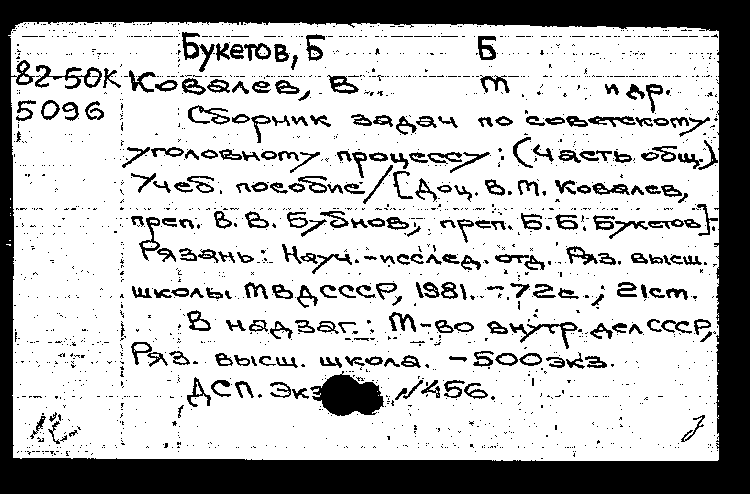 Букетов, Б Б
82-50К Ковалев, В. М. и др.
5096
Сборник задач по советскому
уголовному процессу: (Часть общ.)
Учеб. пособие/[Доц. В.М. Ковалев,
преп. В.В. Бубнов, преп. Б.Б. Букетов].-
Рязань: Науч.-исслед. отд. Ряз. высш.
школы МВДСССР, 1981. -72с.; 21см.
В надзаг.: М-во внутр. дел СССР,
Ряз. высш. школа. -500экз.
ДСП. Экз N456.
12